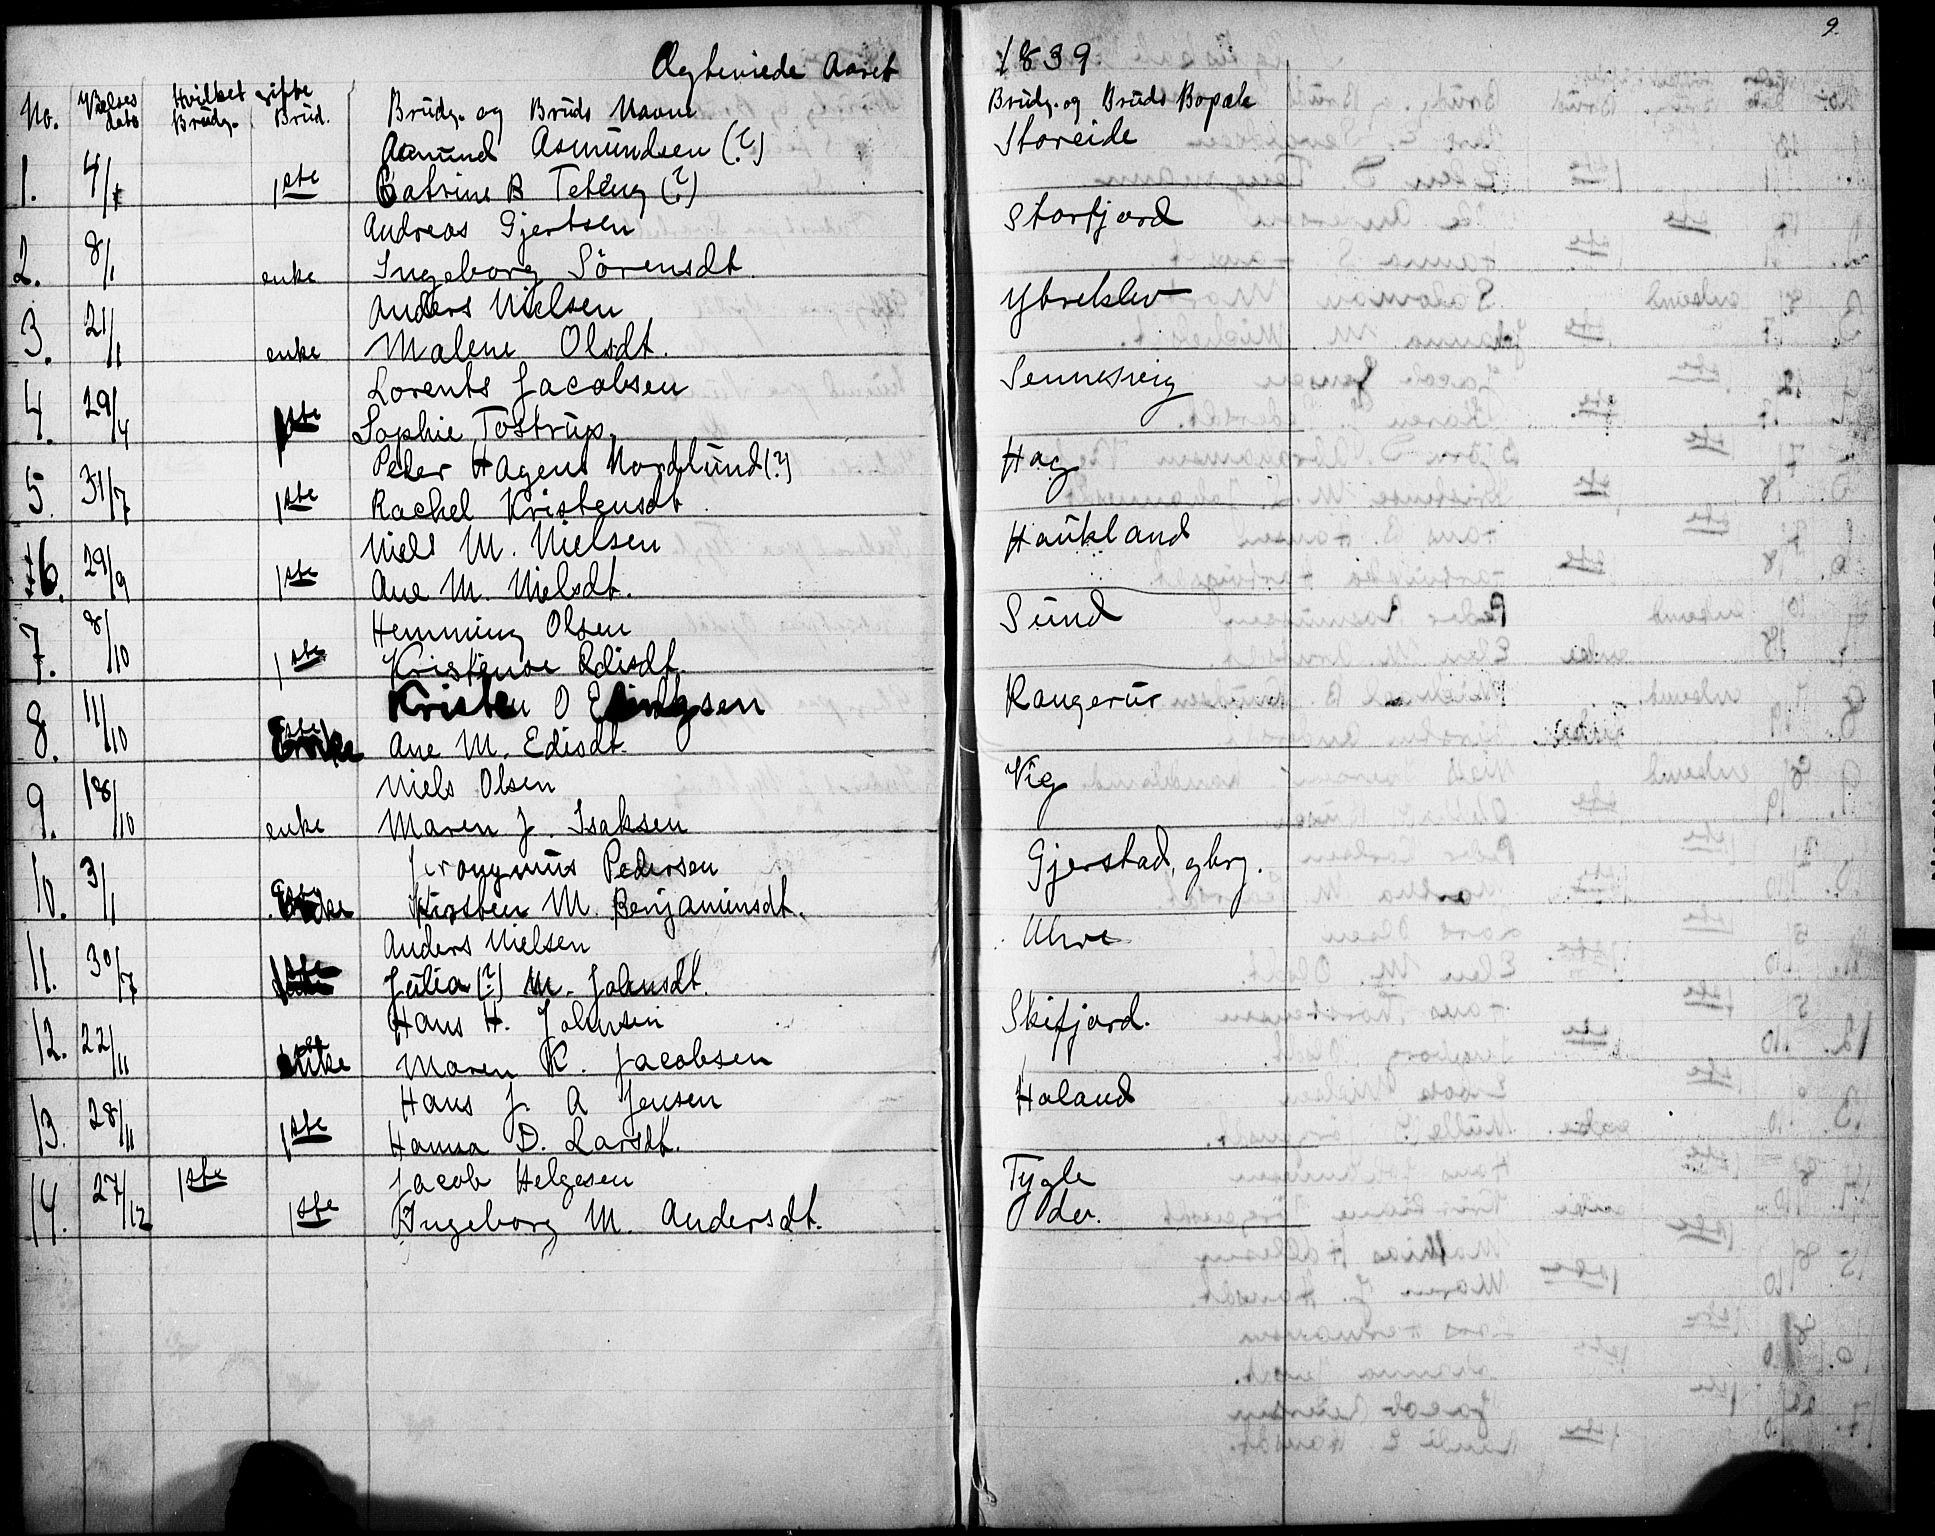 9.
Ægteviede Aaret 1839
No. Vielses dato Hvilket gifte Brudg. Brud. Brudg. og Bruds Navne Brudg. og Bruds Bopæle
Asmund Asmundsen (?) Storeide
1. 4/1 1ste Catrine B Teting (?)
Andreas Gjertsen Storfjord
2. 8/1 enke Ingeborg Sörensdt.
Anders Nielsen Ybreklev
3. 21/1 enke Malene Olsdt.
Lorents Jacobsen Sennesvig
4. 29/4 1ste Sophie Tostrup.
Peder Hagens Nordlund (?) Hag
5. 31/7 1ste Rachel Kristensdt
Niels M. Nielsen Haukland
6. 29/9 1ste Ane M. Nielsdt.
Hemming Olsen Sund
7. 8/10 1ste Kristense Edisdt.
Kristen O Ellingsen Rangerur
8. 11/10 1ste Ane M. Edisdt.
Niels Olsen Vig
9. 18/10 enke Maren J. Isaksen
Jeronymus Pedersen Gjerstad, gbrg.
10. 3/1 Kirsten M. Benjaminsdt.
Anders Nielsen Uhre
11. 30/7 1ste Julia (?) M. Johnsdt.
Hans H. Johnsen Skifjord.
12. 22/11 enke Maren K. Jacobsen
Hans J. A Jensen Haland
13. 28/11 1ste Hanna D. Larsdt.
Jacob Helgesen Tygle
14. 27/12 1ste 1ste Ingeborg M. Andersdt. do.